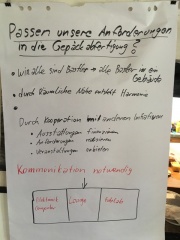 Passen unsere Anforderungen
in die Gepäckabfertigung?
• wir alle sind Bastler → alle Bastler in ein
Gebäude
• durch Räumliche Nähe entsteht Harmonie
•
Durch Kooperation mit anderen Initiativen
• Ausstattungen finanzieren
• Anforderungen reduzieren
• Veranstaltungen anbieten
Kommunikation notwendig
computer
Lounge
Fablab